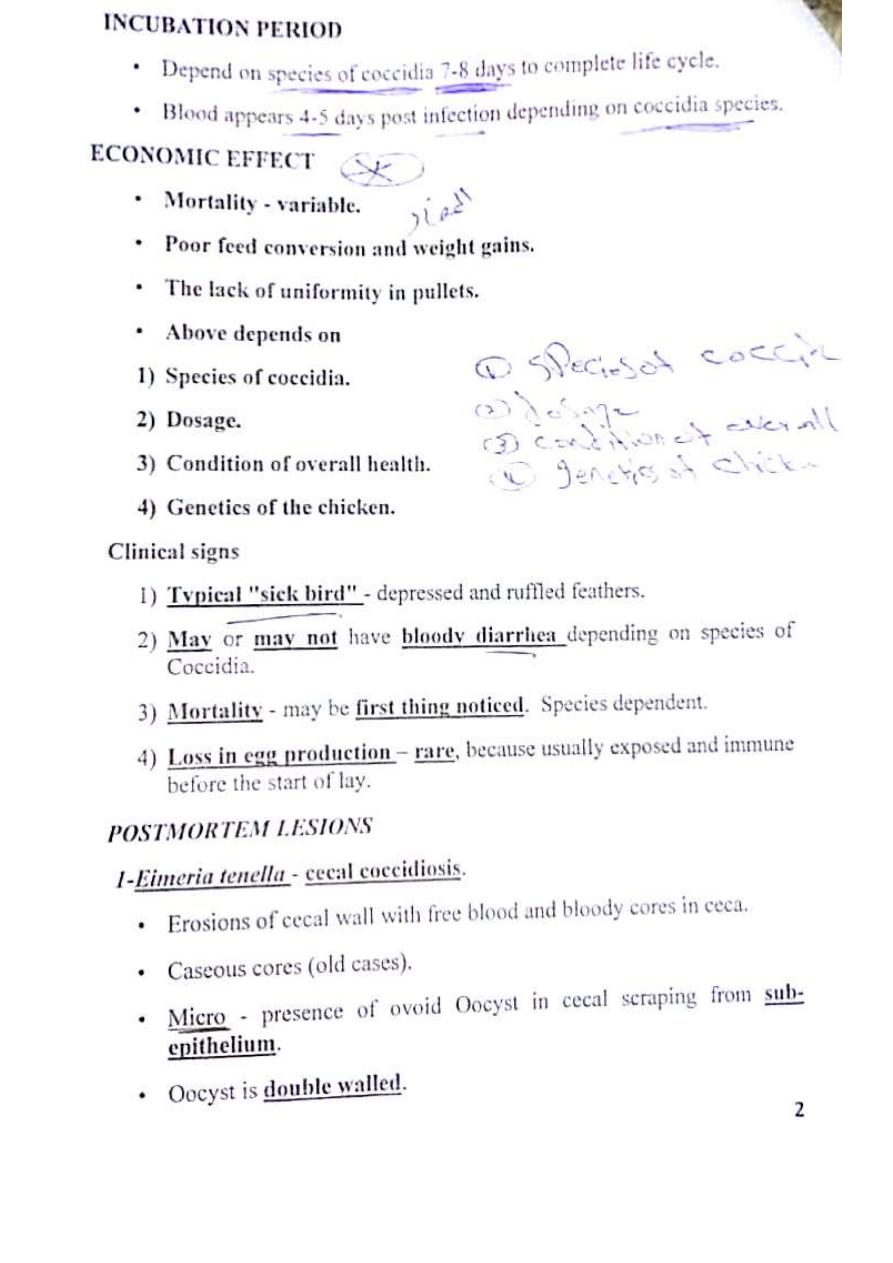 INCUBATION PERIOD
• Depend on species of coccidia 7-8 days to complete life cycle.
• Blood appears 4-5 days post infection depending on coccidia species.
ECONOMIC EFFECT
• Mortality - variable.
• Poor feed conversion and weight gains.
• The lack of uniformity in pullets.
• Above depends on
1) Species of coccidia.
2) Dosage.
3) Condition of overall health.
4) Genetics of the chicken.
① species of
② dosage
③ condition of overall
④ genetics of
Clinical signs
1) Typical "sick bird" - depressed and ruffled feathers.
2) May or may not have bloody diarrhea depending on species of
Coccidia.
3) Mortality - may be first thing noticed. Species dependent.
4) Loss in egg production – rare, because usually exposed and immune
before the start of lay.
POSTMORTEM LESIONS
1-Eimeria tenella - cecal coccidiosis.
• Erosions of cecal wall with free blood and bloody cores in ceca.
• Caseous cores (old cases).
• Micro - presence of ovoid Oocyst in cecal scraping from sub-
epithelium.
• Oocyst is double walled.
2